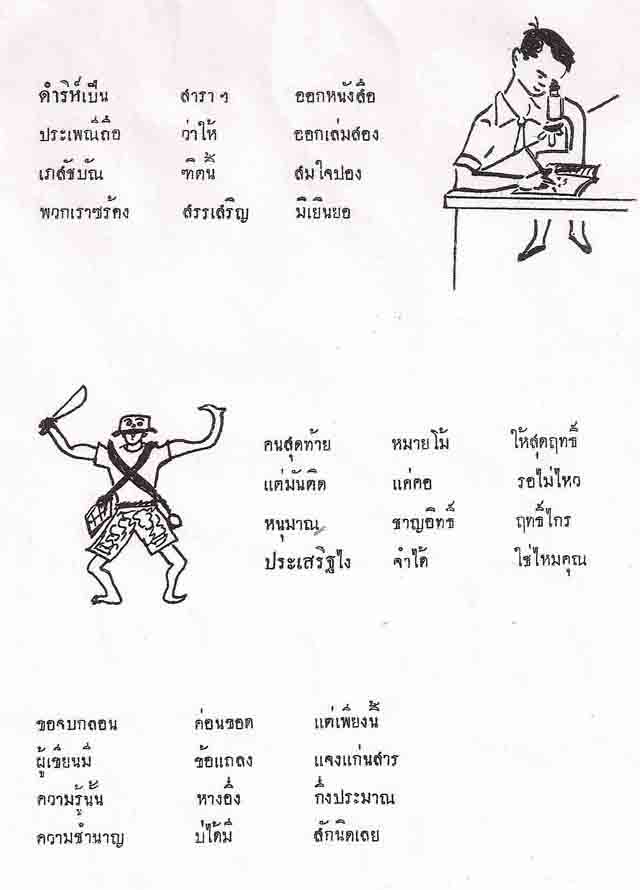 ดำริห์เป็น สารา ๆ ออกหนังสือ
ประเพณีถือ ว่าให้ ออกเล่มสอง
เภสัชบัณ ฑิตนี้ สมใจปอง
พวกเราซร้อง สรรเสริญ มิเยินยอ
คนสุดท้าย หมายโม้ ให้สุดฤทธิ์
แต่มันติด แค่คอ รอไม่ไหว
หนุมาณ ชาญอิทธิ์ ฤทธิ์ไกร
ประเสริฐไง จำได้ ใช่ไหมคุณ
ขอจบกลอน ค่อนขอด แต่เพียงนี้
ผู้เขียนมี ข้อแถลง แจงแก่นสาร
ความรู้นั้น หางอึ่ง กึ่งประมาณ
ความชำนาญ บ่ได้มี สักนิดเลย